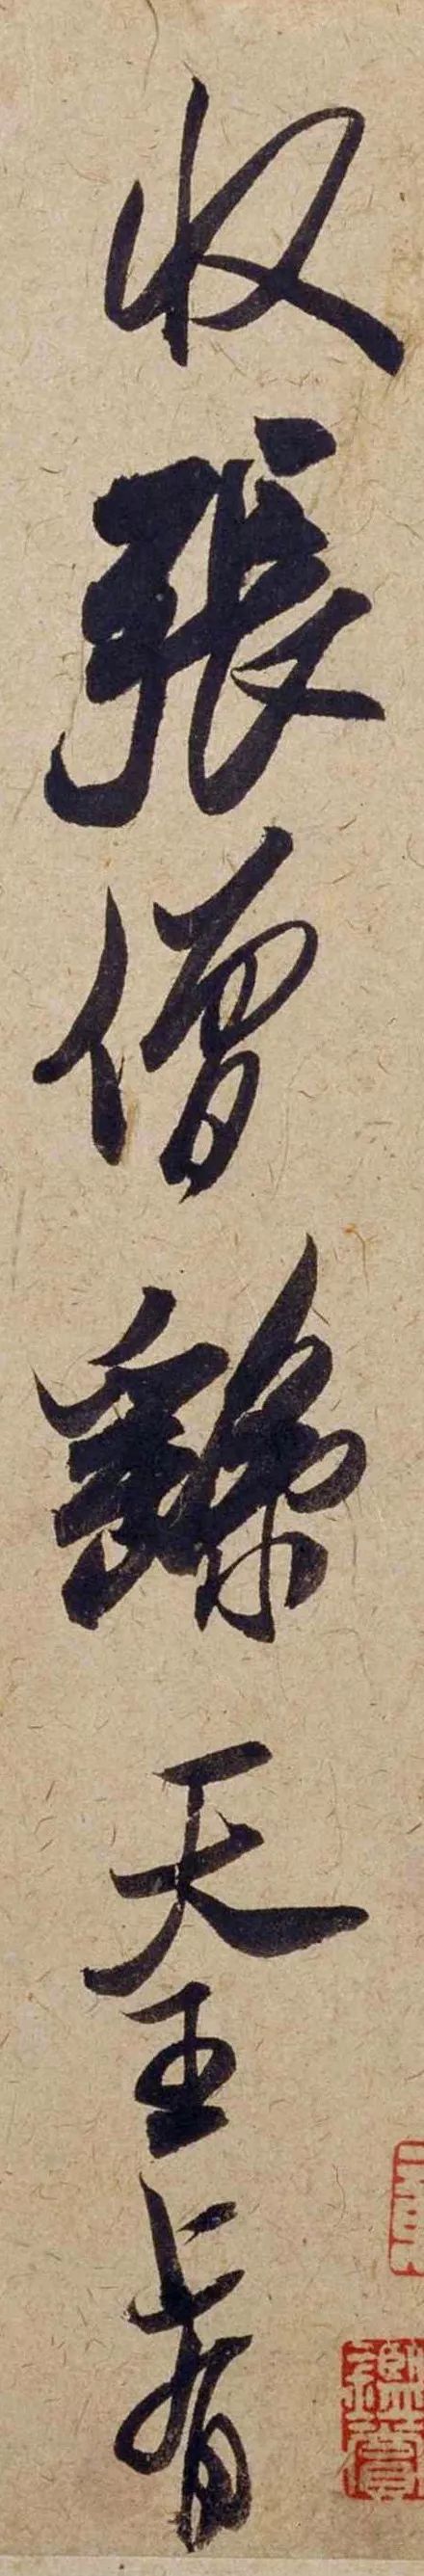 收張僧繇天王上有
鑑賞